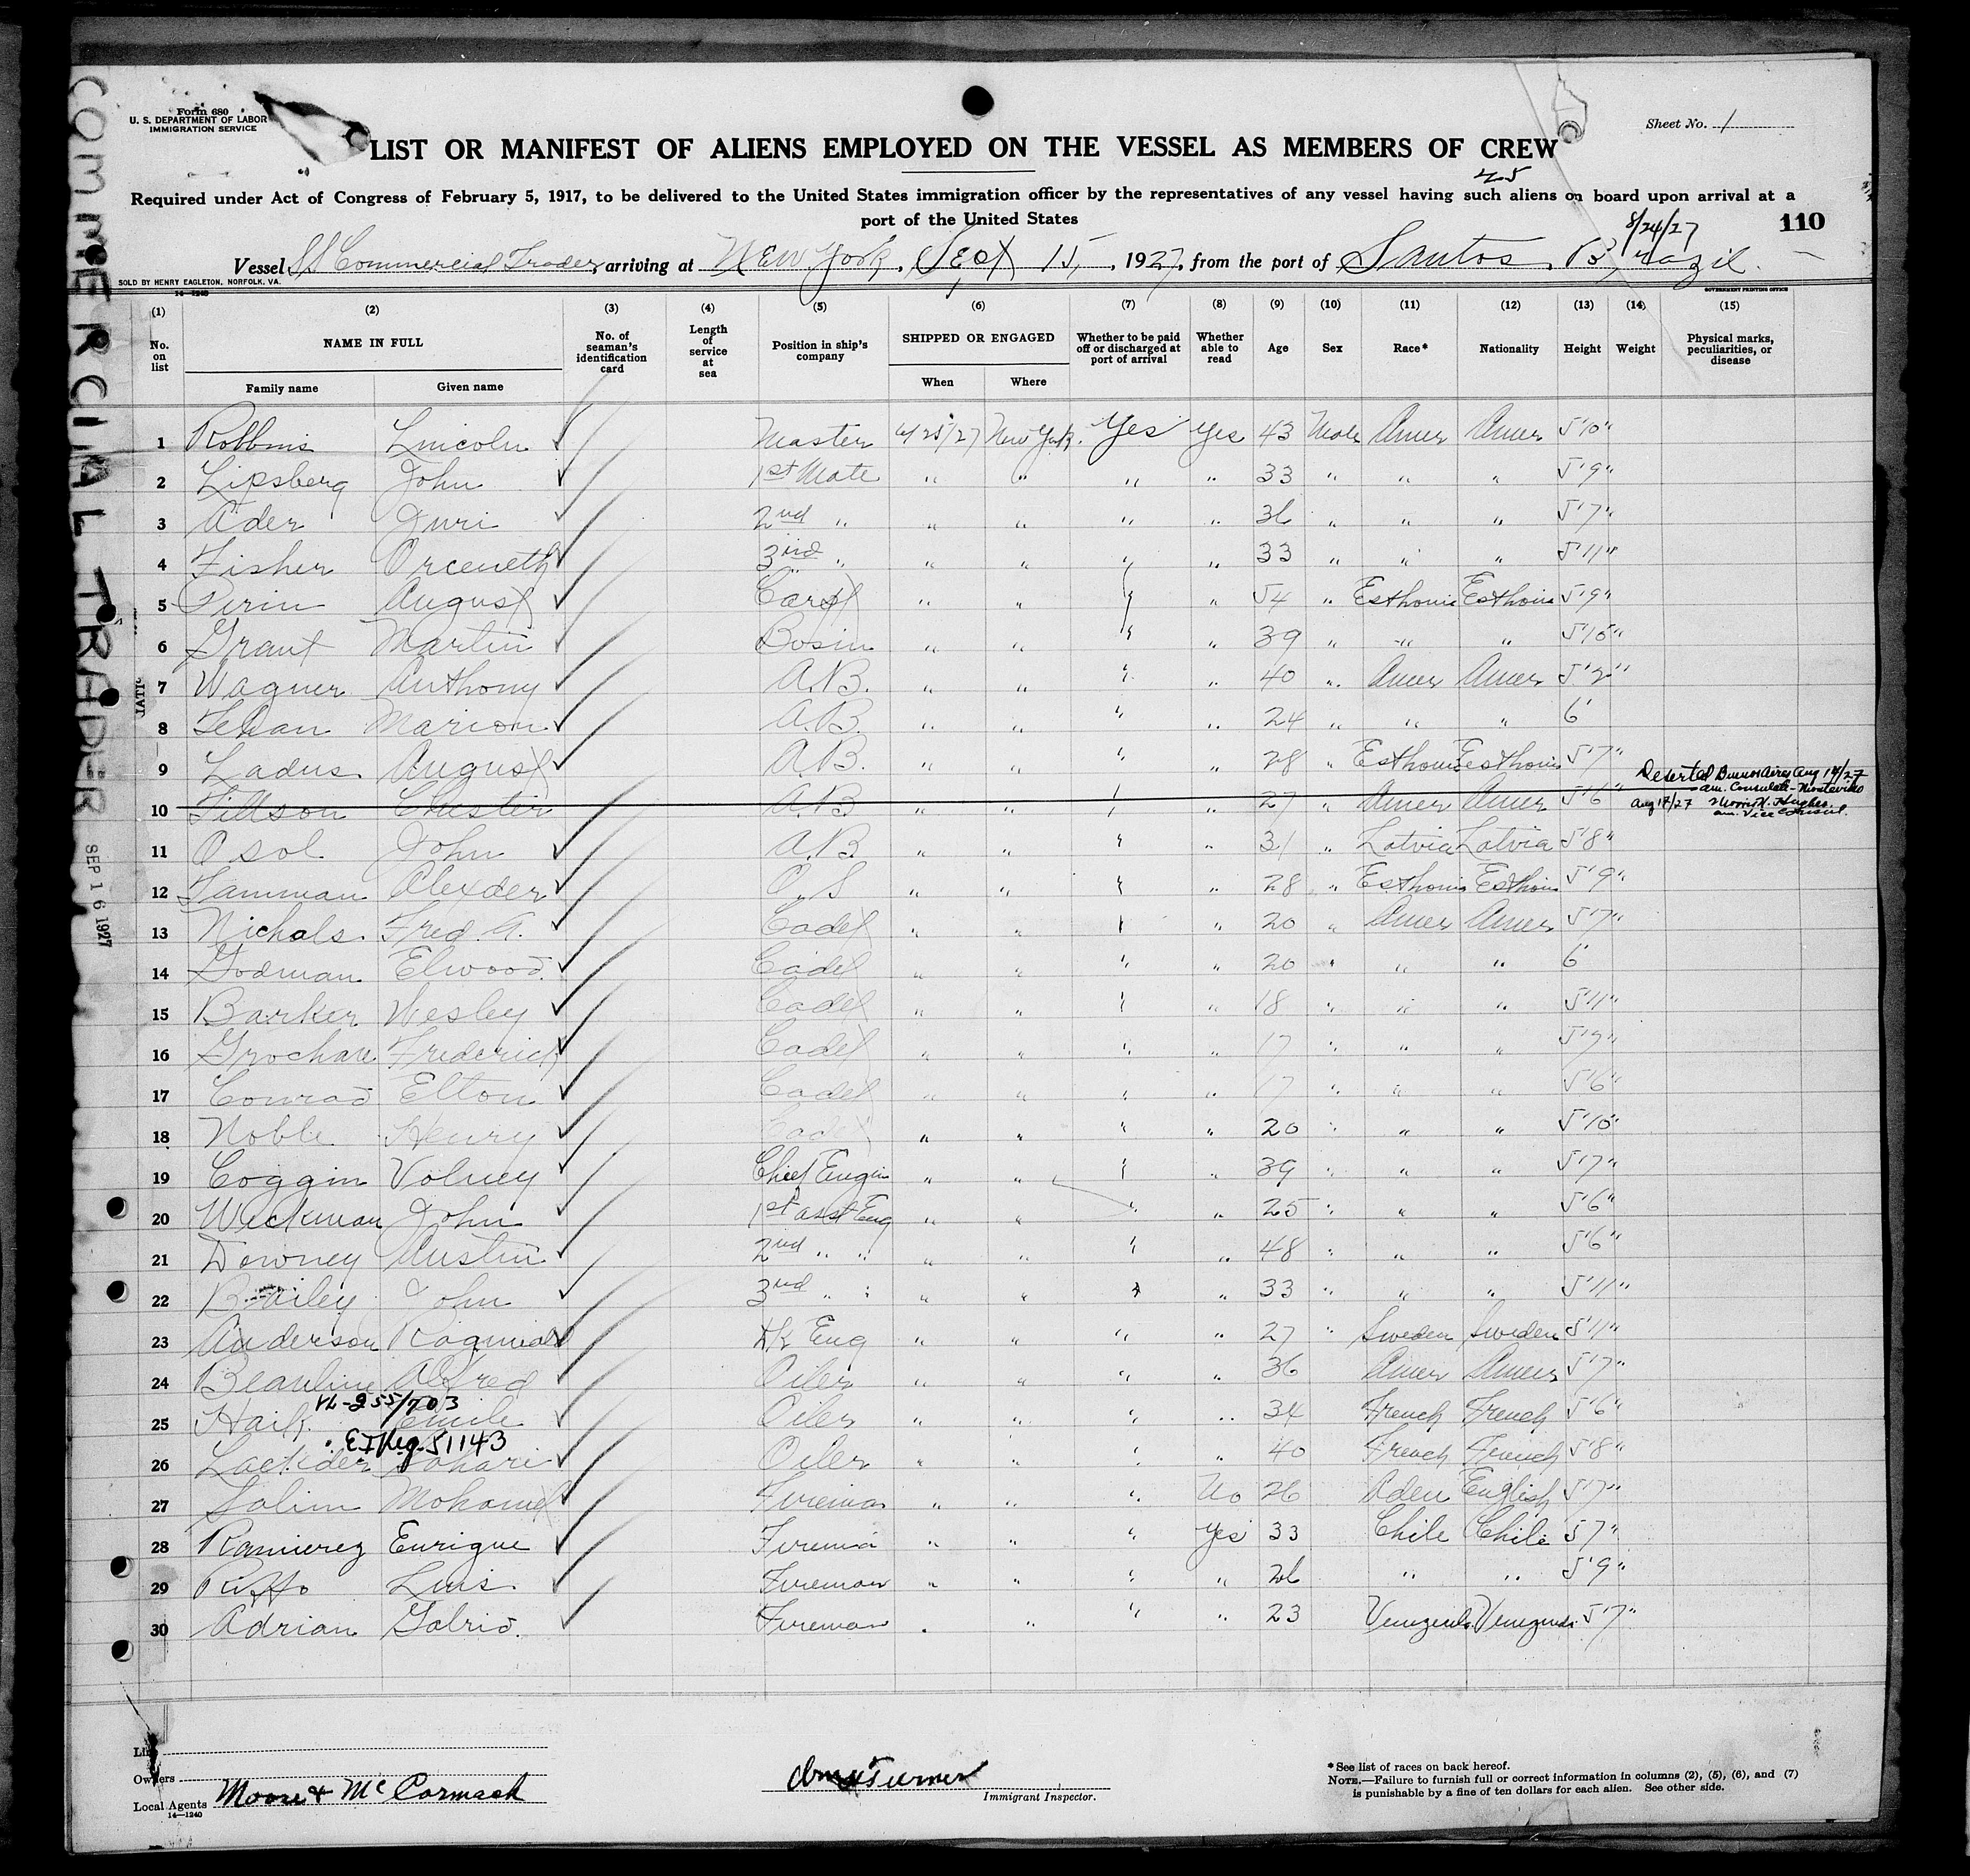 Form 680
U. S. DEPARTMENT OF LABOR
IMMIGRATION SERVICE
Sheet No. 1
LIST OR MANIFEST OF ALIENS EMPLOYED ON THE VESSEL AS MEMBERS OF CREW
45
Required under Act of Congress of February 5, 1917, to be delivered to the United States immigration officer by the representatives of any vessel having such aliens on board upon arrival at a
port of the United States
110
8/24/27
Vessel SS Commercial Trader, arriving at New York, Sept 15, 1927, from the port of Santos, Brazil.
SOLD BY HENRY EAGLETON, NORFOLK, VA.
14—1240
GOVERNMENT PRINTING OFFICE
COMMERCIAL TRADER
SEP 16 1927
(1) (2) (3) (4) (5) (6) (7) (8) (9) (10) (11) (12) (13) (14) (15)
No. on list NAME IN FULL Family name Given name No. of seaman's identification card Length of service at sea Position in ship's company SHIPPED OR ENGAGED When Where Whether to be paid off or discharged at port of arrival Whether able to read Age Sex Race* Nationality Height Weight Physical marks, peculiarities, or disease
1 Robbins Lincoln Master 4/25/27 New York. Yes Yes 43 Male Amer Amer 5'10"
2 Lipsberg John 1st Mate " " " " 33 " " " 5'9"
3 Ader Juri 2nd " " " " " 36 " " " 5'7"
4 Fisher Orceneth 3rd " " " " " 33 " " " 5'11"
5 Pirin August Carpt " " " " 54 " Esthonia Esthonia 5'9"
6 Grant Martin Bosin " " " " 39 " " " 5'10"
7 Wagner Anthony A.B. " " " " 40 " Amer Amer 5'2"
8 Tehan Marion A.B. " " " " 24 " " " 6'
9 Ladus August A.B. " " " " 28 " Esthonia Esthonia 5'7"
10 Tillson Chester A.B " " " " 27 " Amer Amer 5'6" Deserted Buenos Aires Aug 14/27
Am. Consulate - Montevideo
Aug 17/27 Hughes
Am. Vice Consul.
11 Osol John A.B. " " " " 31 " Latvia Latvia 5'8"
12 Tamman Alexder O.S " " " " 28 " Esthonia Esthonia 5'9"
13 Nichols Fred. A. Cadet " " " " 20 " Amer Amer 5'7"
14 Godman Elwood. Cadet " " " " 20 " " " 6'
15 Barker Wesley Cadet " " " " 18 " " " 5'11"
16 Frederick Cadet " " " " 17 " " "
17 Conrad Elton Cadet " " " " 17 " " " 5'6"
18 Noble Henry Cadet " " " " 20 " " " 5'10"
19 Coggin Volney Chief Engin " " " " 39 " " " 5'7"
20 Weckman John 1st asst Eng " " " " 25 " " " 5'6"
21 Downey Austin 2nd " " " " " " 48 " " " 5'6"
22 Bailey John 3rd " " " " " " 33 " " " 5'11"
23 Anderson Dk Eng " " " " 27 " Sweden Sweden 5'11"
24 Beauline Alfred Oiler " " " " 36 Amer Amer 5'7"
25 Haik Emile Oiler " " " " 34 French French 5'6"
26 Oiler " " " " 40 French French 5'8"
27 Salim Mohamed Fireman " " " No 26 Aden English 5'7"
28 Ramierez Enrigue Firema " " " Yes 33 Chile Chile 5'7"
29 Luis. Fireman " " " " 26 " " 5'9"
30 Adrian Fireman " " " " 23 5'7"
Owners
Local Agents Moore & McCormack
14—1240
Turner
Immigrant Inspector.
* See list of races on back hereof.
NOTE.—Failure to furnish full or correct information in columns (2), (5), (6), and (7)
is punishable by a fine of ten dollars for each alien. See other side.